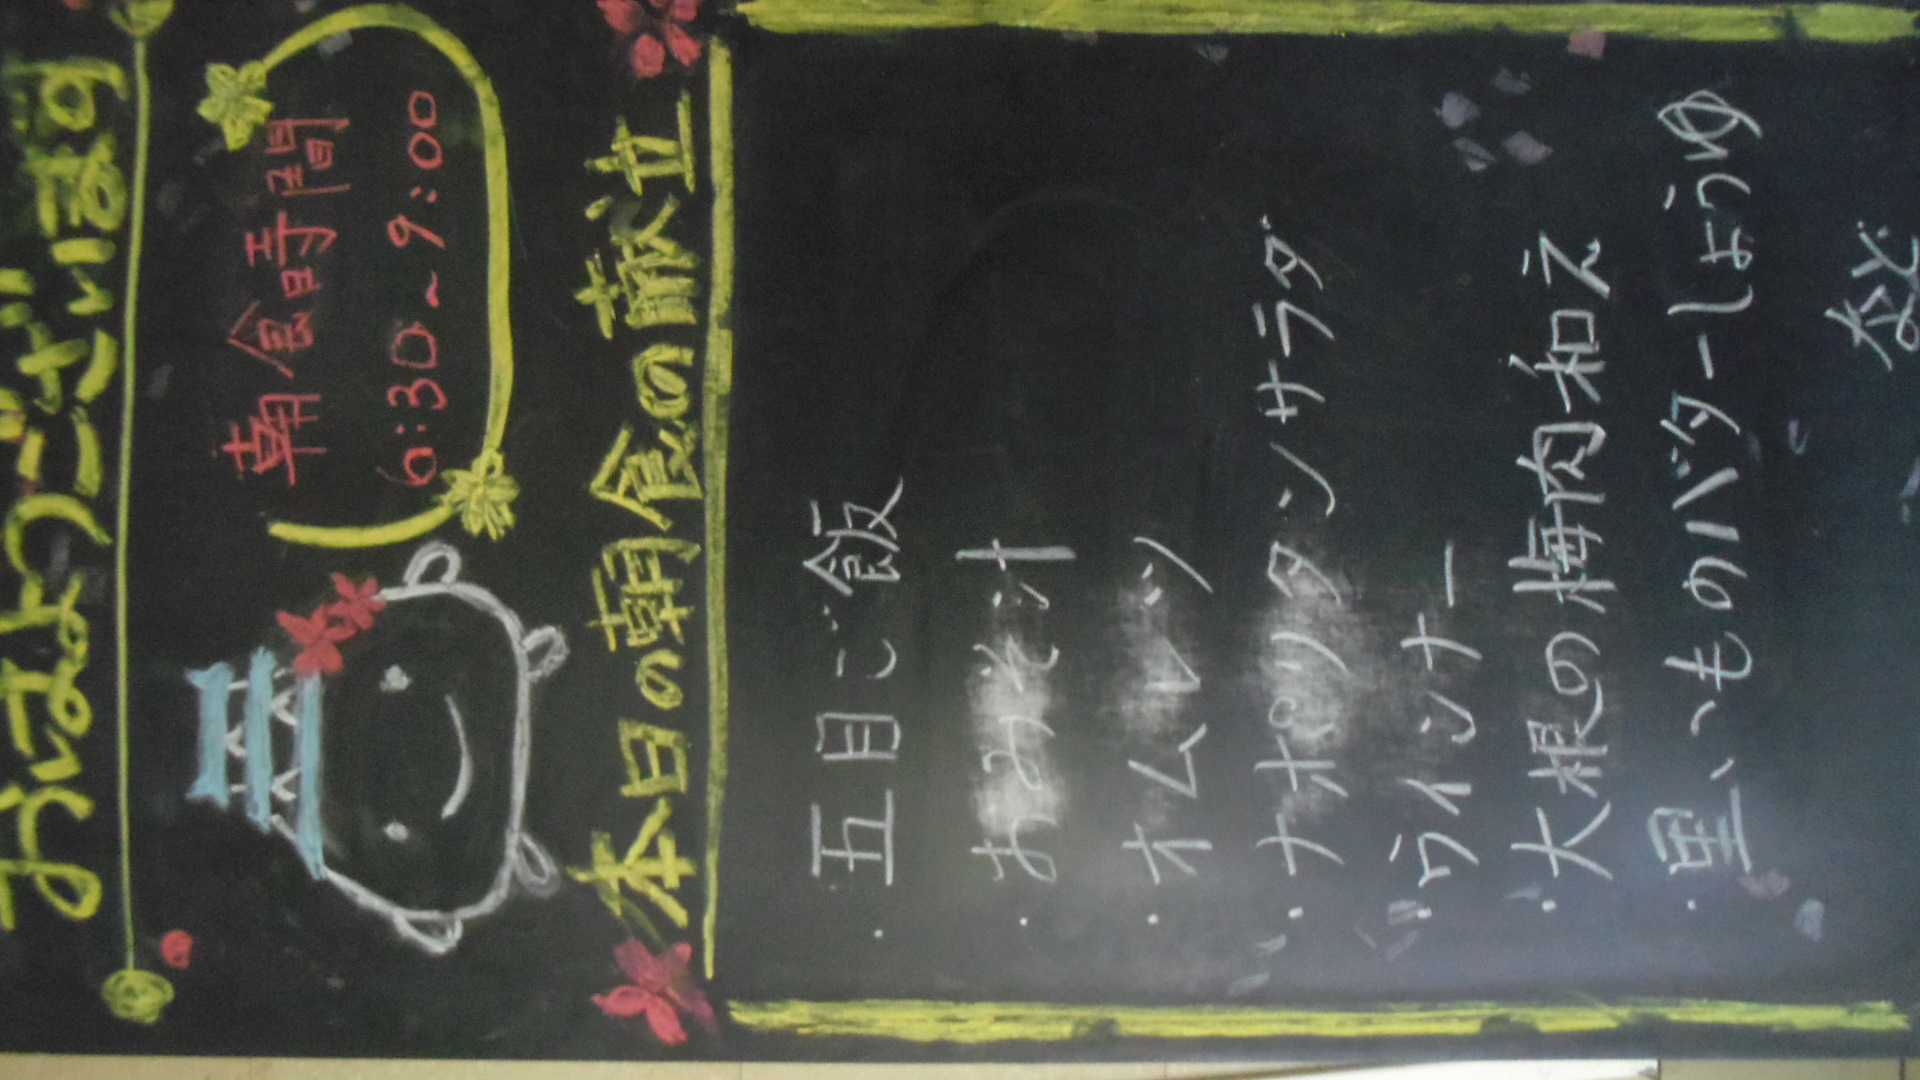 おはようございます
朝食時間
6:30~9:00
本日の朝食の献立
・五目ご飯
・おみそ汁
・オムレツ
・ナポリタンサラダ
・ウインナー
・大根の梅肉和え
・里いものバターしょうゆ
など